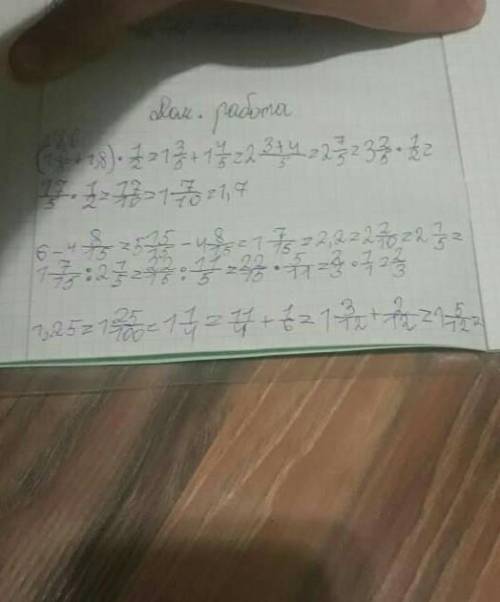 Дом. работа
+ 1,8) · 1/2 = 1 3/5 + 1 4/5 = 2 3+4/5 = 2 7/5 = 3 2/5 · 1/2 =
17/5 · 1/2 = 17/10 = 1 7/10 = 1,7
6 - 4 8/15 = 5 15/15 - 4 8/15 = 1 7/15 = 2,2 = 2 2/10 = 2 1/5 =
1 7/15 : 2 1/5 = 22/15 : 11/5 = 22/15 · 5/11 = 2/3 · 1/1 = 2/3
1,25 = 1 25/100 = 1 1/4 = 11/4 + 1/6 = 1 3/12 + 2/12 = 1 5/12 =